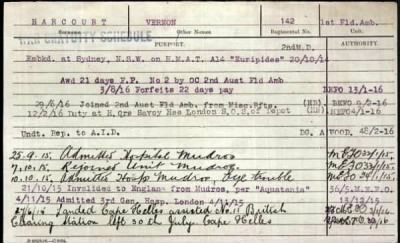 HARCOURT VERNON 142 1st Fld. Amb.
Surname Other Names Regimental No.
WAR GRATUITY SCHEDULE
PURPORT. 2ndM.D.
Embkd. at Sydney, N.S.W. on H.M.A.T. A14 "Euripides" 20/10/14
Awd 21 days F.P. No 2 by OC 2nd Aust Fld Amb
3/6/16 Forfeits 22 days pay BEFO 13/1-16
29/6/16 Joined 2nd Aust Fld A. from Misc. Rfts. (HE) BEFO 9/2-16
12/2/16 Duty at H,Qrs Savoy Hse London of Depot (HE)
Undt. Rep to A.I.D. DG, A 48/2-16
25.9.15. Admitted Hospital Mudros
7.10.15. Rejoined Unit Mudros
10.10.15. Admitted Hosp Mudros, Eye trouble
21/10/15 Invalided to England from Mudros, per "Aquatania"
4/11/15 Admitted 3rd Gen. Hosp. London 4/11/15 13/12/15
Landed Cape Helles assisted No. 11 British
Clearing Station left 30th July. Cape Helles